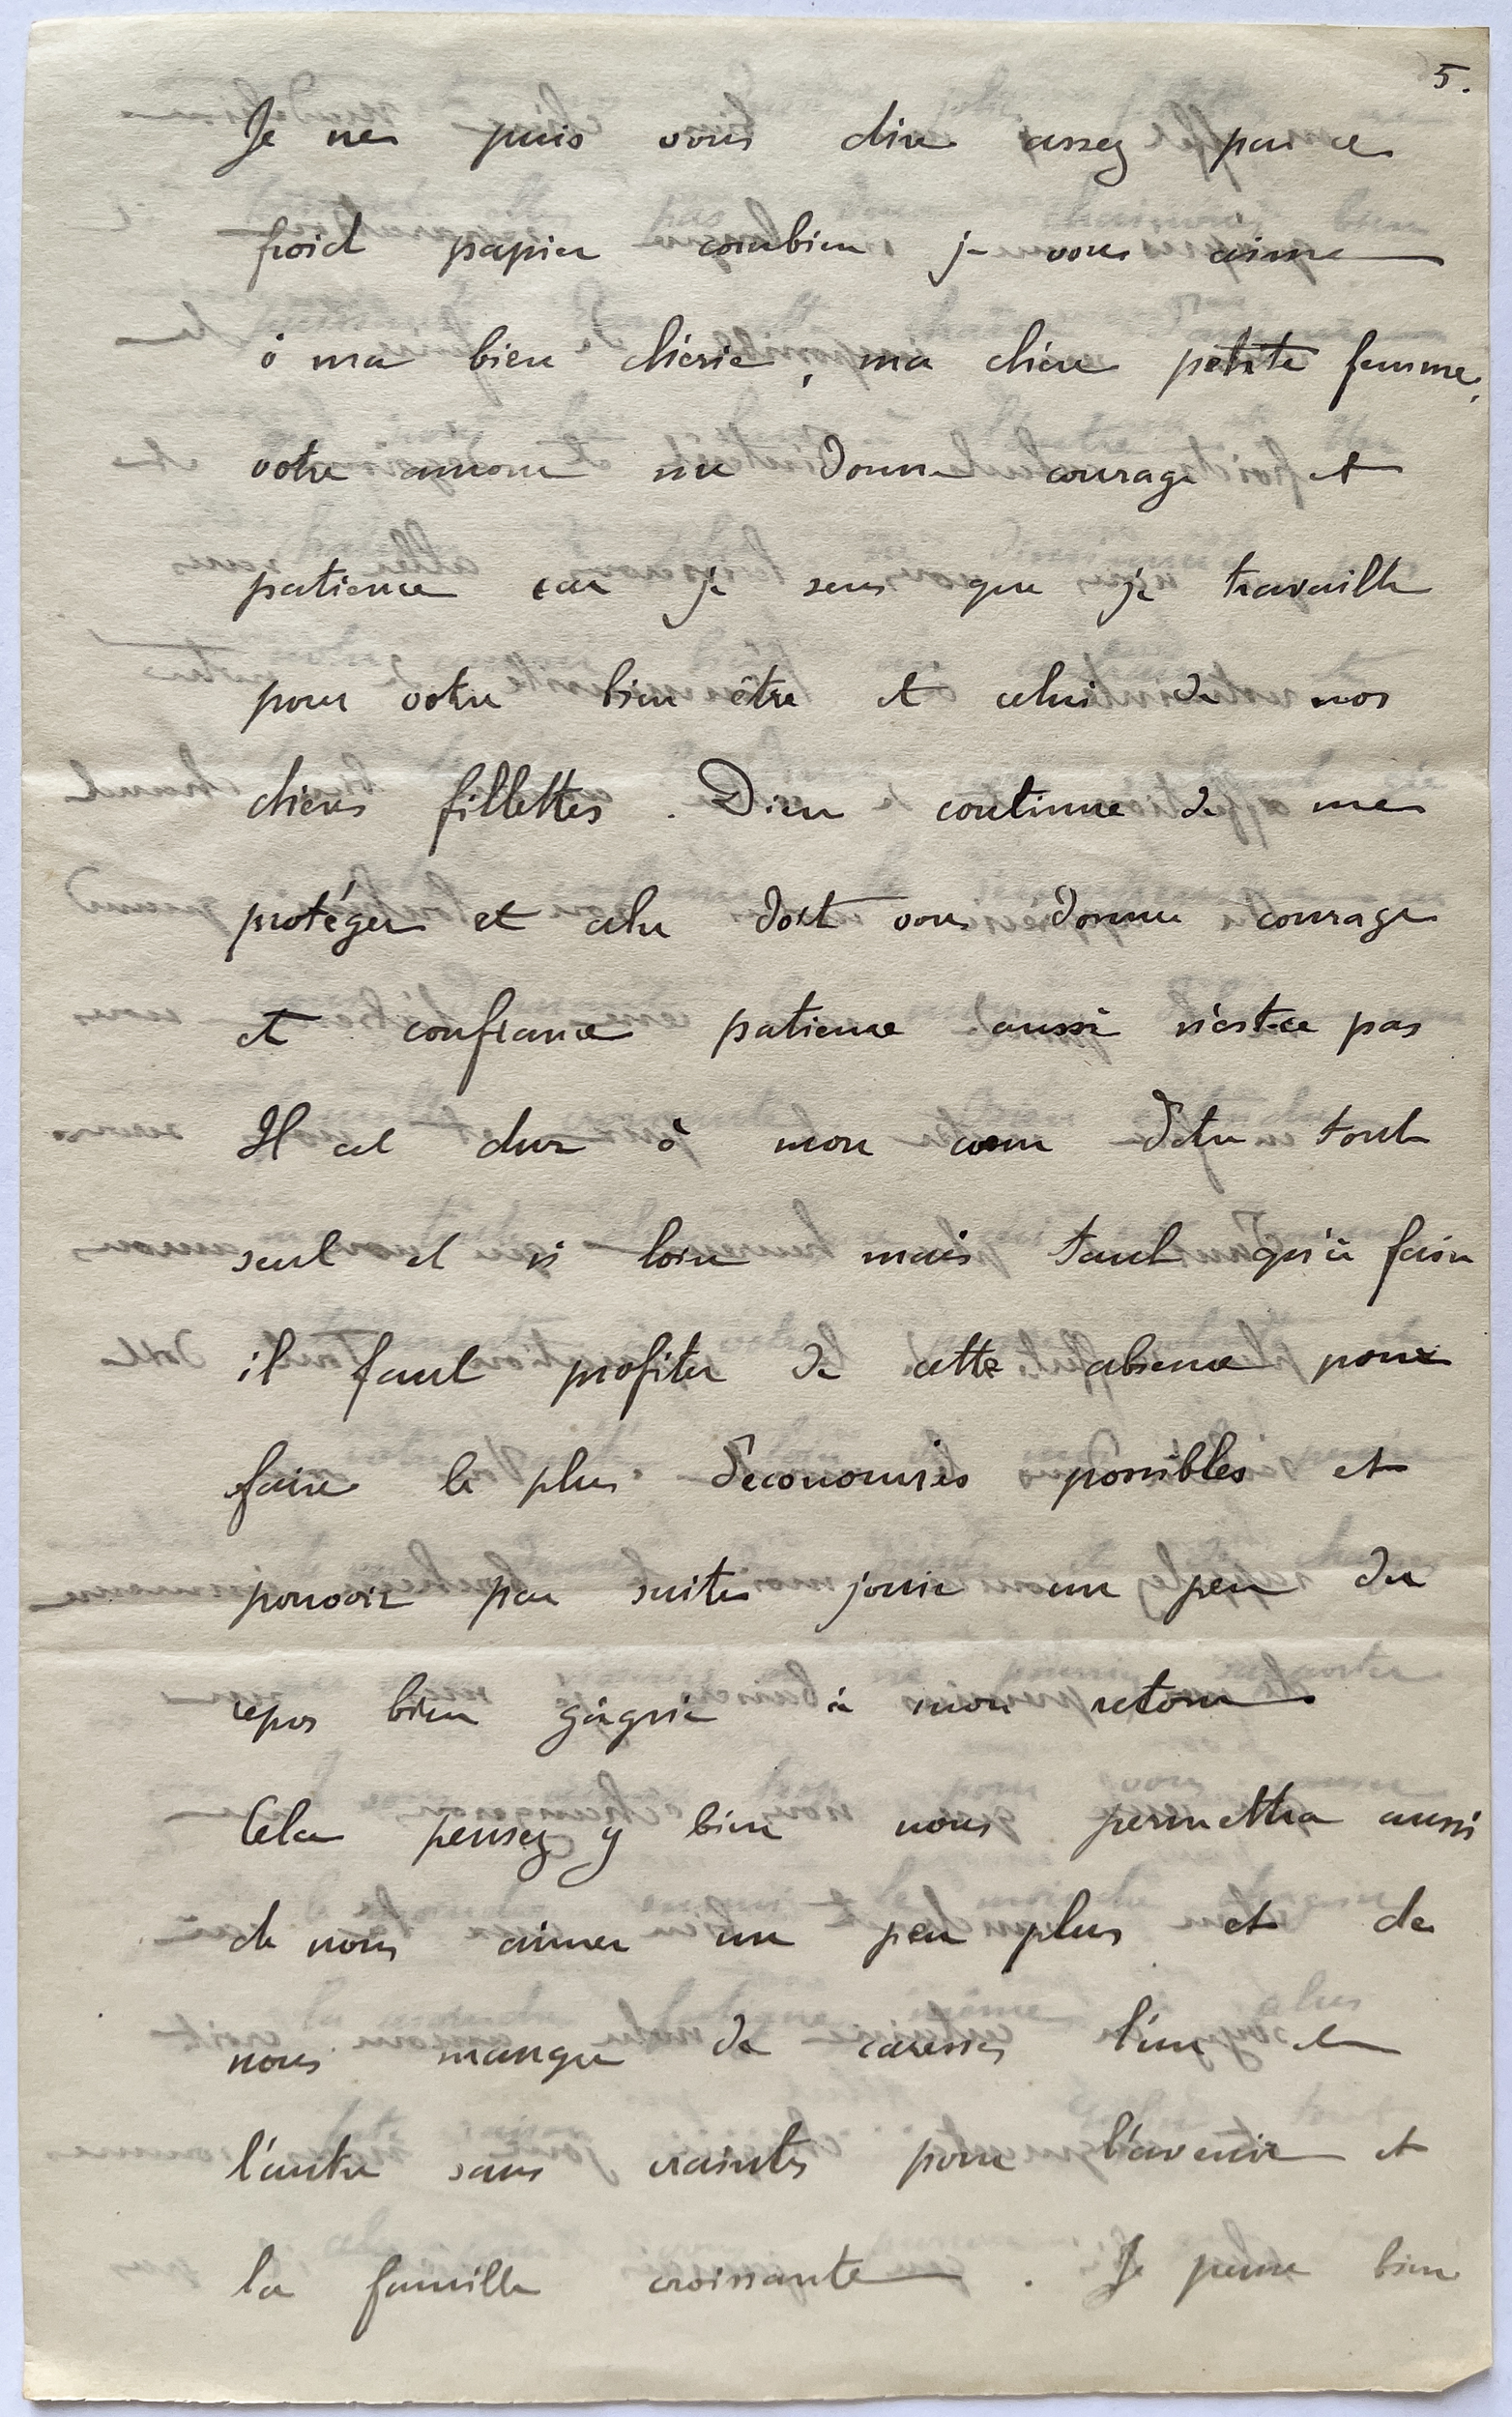 5.
Je ne puis vous dire assez par ce
froid papier combien je vous aime
ô ma bien chérie, ma chère petite femme,
votre amour me donne courage et
patience car je sens que je travaille
pour votre bien être et celui de nos
chères fillettes. Dieu continue de me
protéger et cela doit vous donner courage
et confiance patience aussi n'est-ce pas
Il est dur à mon cœur d'être tout
seul et si loin mais tant qu'à faire
il faut profiter de cette absence pour
faire le plus d'économies possibles et
pouvoir par suite jouir un peu du
repos bien gagné à mon retour.
Cela pensez y bien nous permettra aussi
de nous aimer un peu plus et de
nous manger de caresses l'un et
l'autre sans craintes pour l'avenir et
la famille croissante. Je pense bien